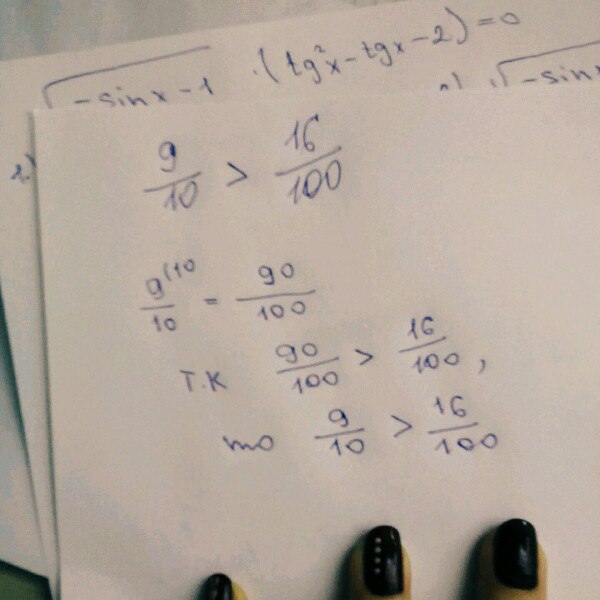 √(-sinx-1) · (tg²x - tgx - 2) = 0
√-sinx
9/10 > 16/100
9/10 ⁽¹⁰ = 90/100
т.к 90/100 > 16/100,
то 9/10 > 16/100